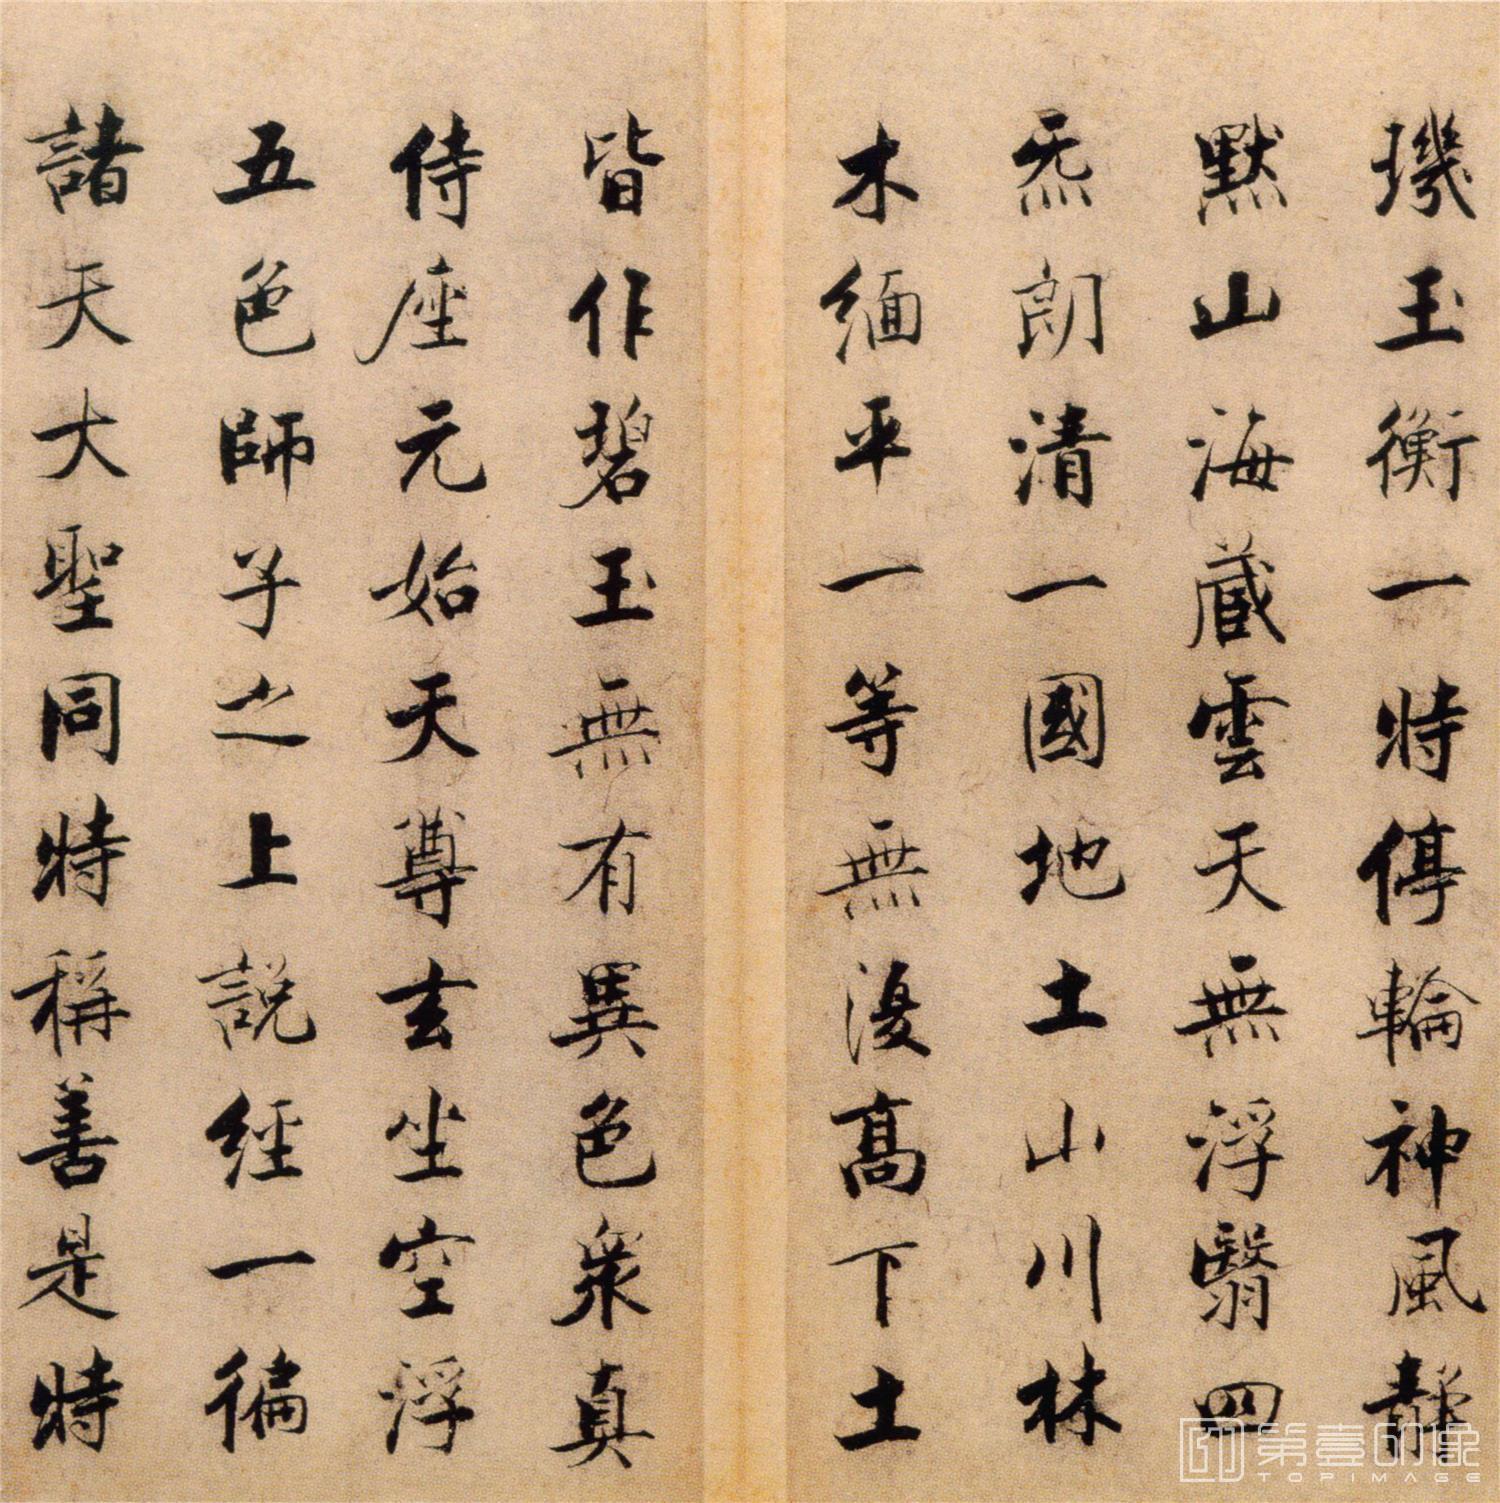 璣玉衡一時停輪神風靜
默山海藏雲天無浮翳四
炁朗清一國地土山川林
木緬平一等無復高下土
皆作碧玉無有異色衆真
侍座元始天尊玄坐空浮
五色師子之上說經一徧
諸天大聖同時稱善是時
第壹印象
TOPIMAGE